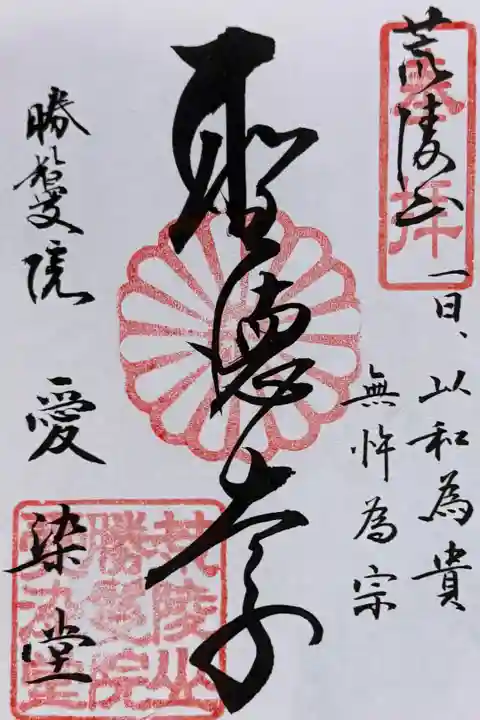 荒陵山
奉拝
一曰、以和為貴
無忤為宗
聖徳太子
勝鬘院 愛染堂
荒陵山
勝鬘院
愛染堂